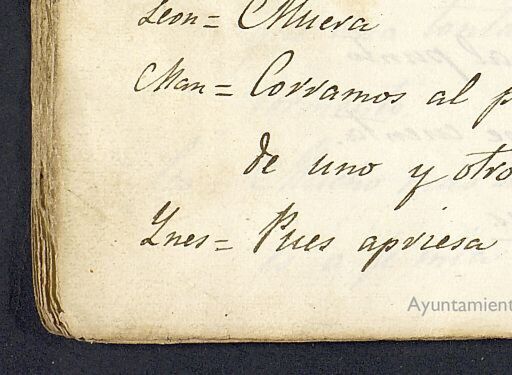 Leon = Muera
Man = Corramos al p
de uno y otro
Ynes = Pues apriesa
Ayuntamient